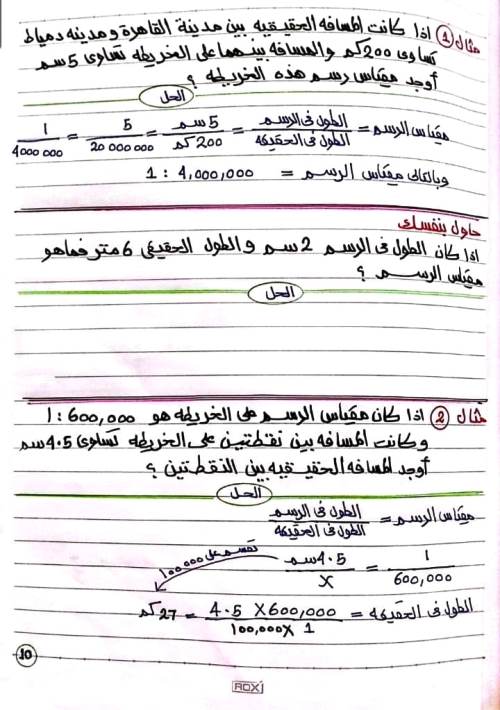 مثال ① اذا كانت المسافه الحقيقيه بين مدينة القاهرة ومدينه دمياط
تساوى 200 كم والمسافه بينهما على الخريطه تساوى 5 سم
أوجد مقياس رسم هذه الخريطه ؟
الحل
مقياس الرسم = الطول فى الرسم / الطول فى الحقيقه = 5 سم / 200 كم = 5 / 20 000 000 = 1 / 4000 000
وبالتالى مقياس الرسم = 1 : 4,000,000
حاول بنفسك
اذا كان الطول فى الرسم 2 سم و الطول الحقيقى 6 متر فما هو
مقياس الرسم ؟
الحل
مثال ② اذا كان مقياس الرسم على الخريطه هو 600,000 : 1
وكانت المسافه بين نقطتين على الخريطه تساوى 4.5 سم
أوجد المسافه الحقيقيه بين النقطتين ؟
الحل
مقياس الرسم = الطول فى الرسم / الطول فى الحقيقه
1 / 600,000 = 4.5 سم / X
نقسم على 100000
الطول فى الحقيقه = 4.5 X 600,000 / 100,000 X 1 = 27 كم
10
ROXI